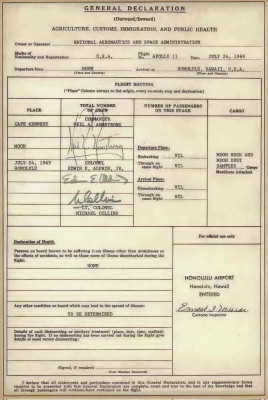 GENERAL DECLARATION
(Outward/Inward)
AGRICULTURE, CUSTOMS, IMMIGRATION, AND PUBLIC HEALTH
Owner or Operator NATIONAL AERONAUTICS AND SPACE ADMINISTRATION
Marks of Nationality and Registration U.S.A. Flight No. APOLLO 11 Date JULY 24, 1969
Departure from MOON (Place and Country) Arrival at HONOLULU, HAWAII, U.S.A. (Place and Country)
FLIGHT ROUTING
("Place" Column always to list origin, every en-route stop and destination)
PLACE
TOTAL NUMBER OF CREW
NUMBER OF PASSENGERS ON THIS STAGE
CARGO
CAPE KENNEDY
COMMANDER
NEIL A. ARMSTRONG
MOON
Departure Place:
Embarking NIL
Through on same flight NIL
MOON ROCK AND
MOON DUST
SAMPLES
Cargo Manifests Attached
JULY 24, 1969
HONOLULU
COLONEL
EDWIN E. ALDRIN, JR.
Arrival Place:
Disembarking NIL
Through on same flight NIL
LT. COLONEL
MICHAEL COLLINS
Declaration of Health
For official use only
Persons on board known to be suffering from illness other than airsickness or
the effects of accidents, as well as those cases of illness disembarked during the
flight:
NONE
HONOLULU AIRPORT
Honolulu, Hawaii
ENTERED
Customs Inspector
Any other condition on board which may lead to the spread of disease:
TO BE DETERMINED
Details of each disinsecting or sanitary treatment (place, date, time, method)
during the flight. If no disinsecting has been carried out during the flight give
details of most recent disinsecting:
Signed, if required
Crew Member Concerned
I declare that all statements and particulars contained in this General Declaration, and in any supplementary forms
required to be presented with this General Declaration are complete, exact and true to the best of my knowledge and that
all through passengers will continue/have continued on the flight.